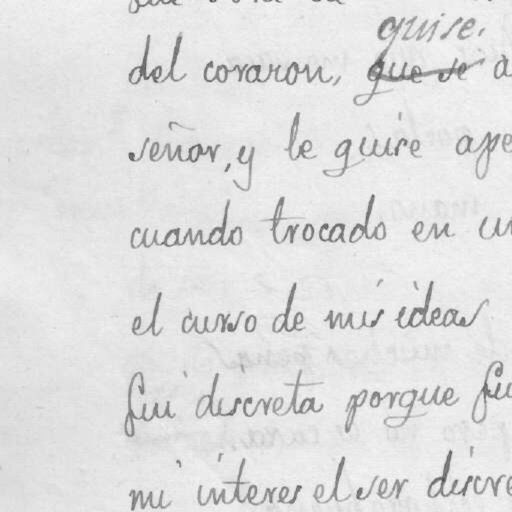 quise.
del corazon, que se a
señor, y le quise ape
cuando trocado en un
el curso de mis ideas
fui discreta porque fu
mi interes el ser discre